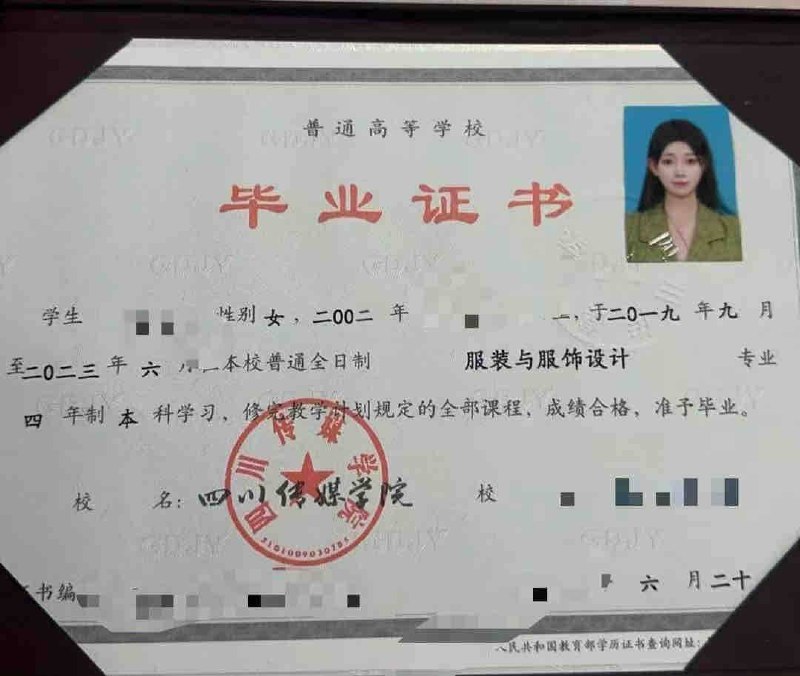 普通高等学校
毕业证书
学生 性别 女，二00二 年 ，于二0一九 年 九 月
至二0二三 年 六 本校普通全日制 服装与服饰设计 专业
四 年制 本 科学习，修完教学计划规定的全部课程，成绩合格，准予毕业。
四川传媒学院
5101009030785
校 名：四川传媒学院 校
书编 六 月二十
人民共和国教育部学历证书查询网址：